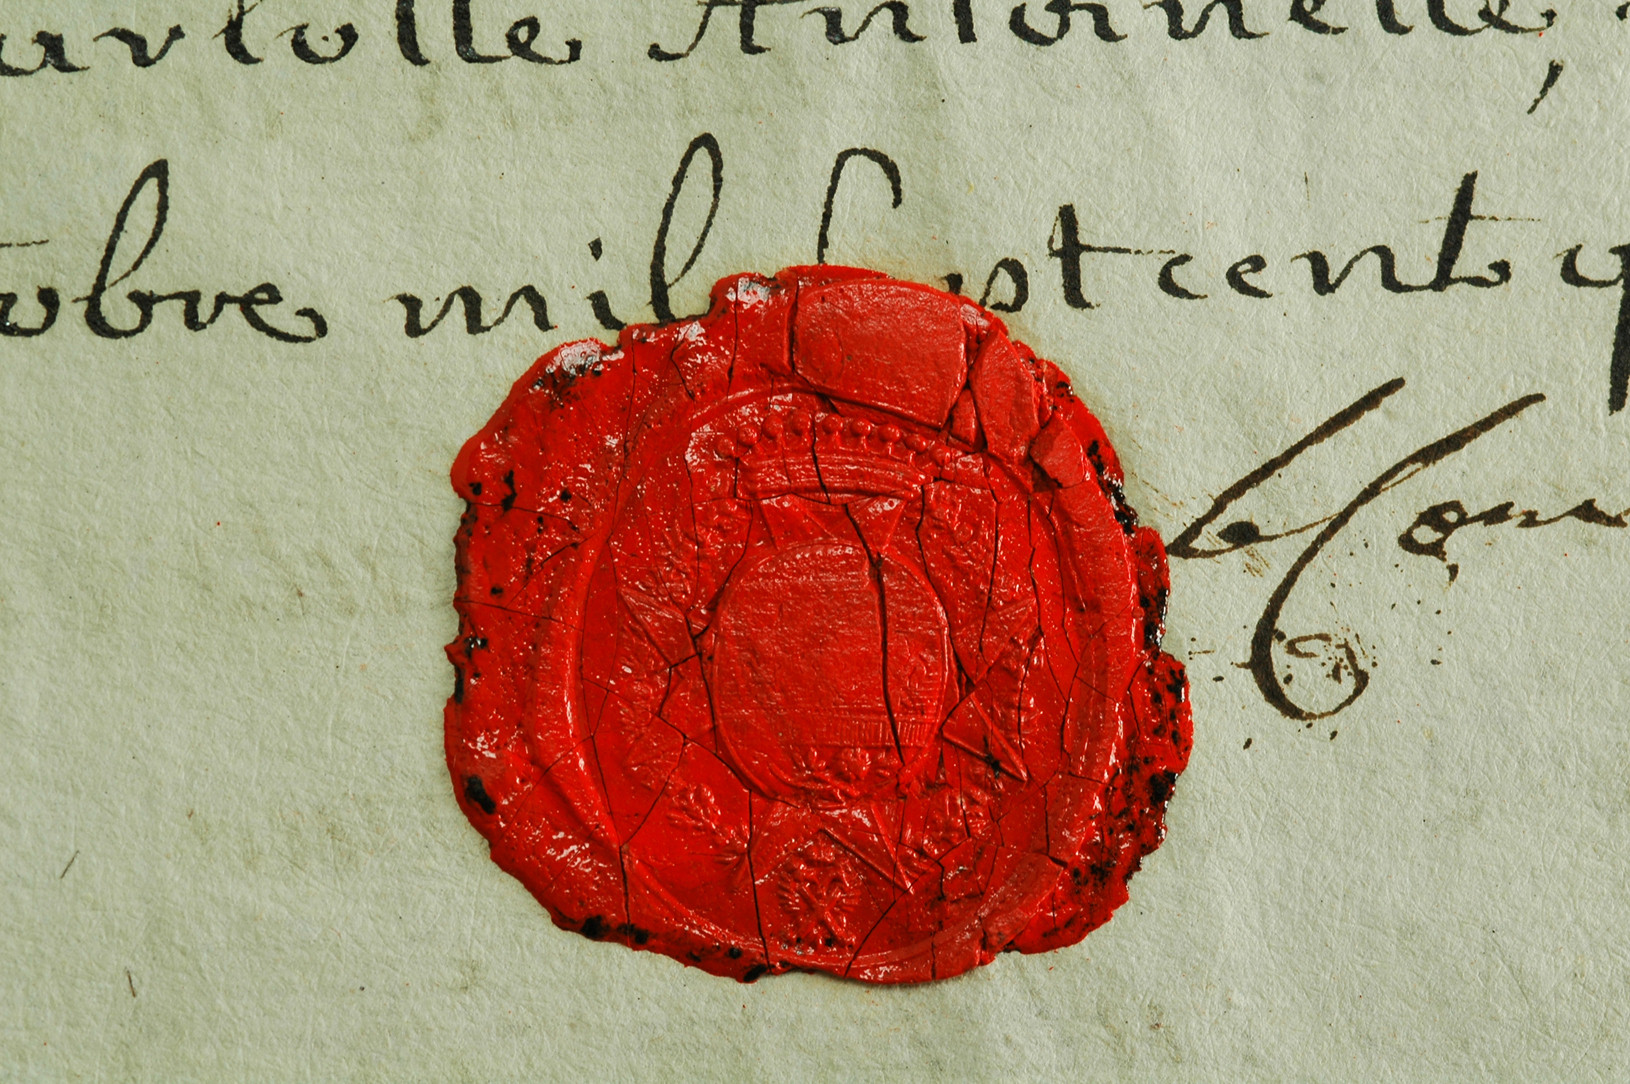 arlotte Antoinette,
tobre mil sept cent q
le Com